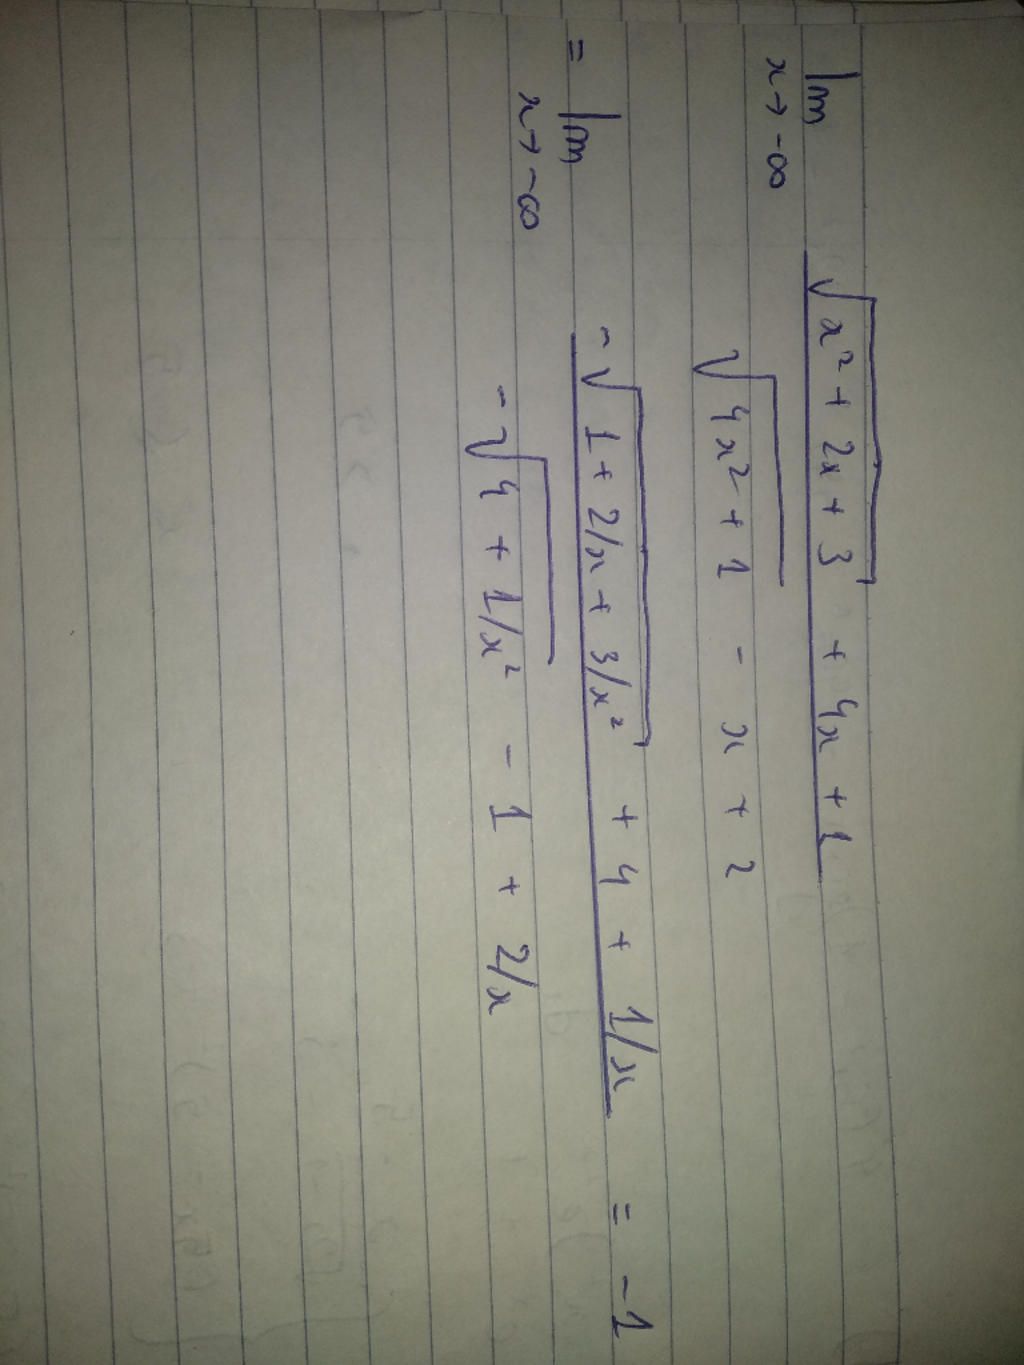 lim x→-∞ √(x² + 2x + 3) + 4x + 1 / √(4x² + 1) - x + 2
= lim x→-∞ -√(1 + 2/x + 3/x²) + 4 + 1/x / -√(4 + 1/x²) - 1 + 2/x = -1